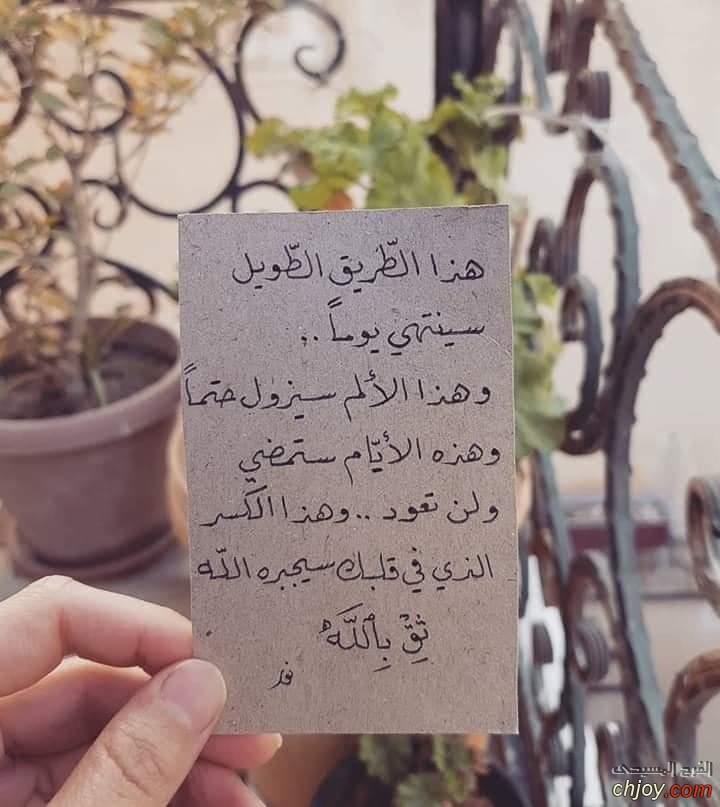 هذا الطّريق الطّويل
سينتهي يوماً ..
وهذا الألم سيزول حتماً
وهذه الأيّام ستمضي
ولن تعود .. وهذا الكسر
الذي في قلبك سيجبره اللّه
ثِقْ بِاللَّه
الفرح المسيحى
chjoy.com